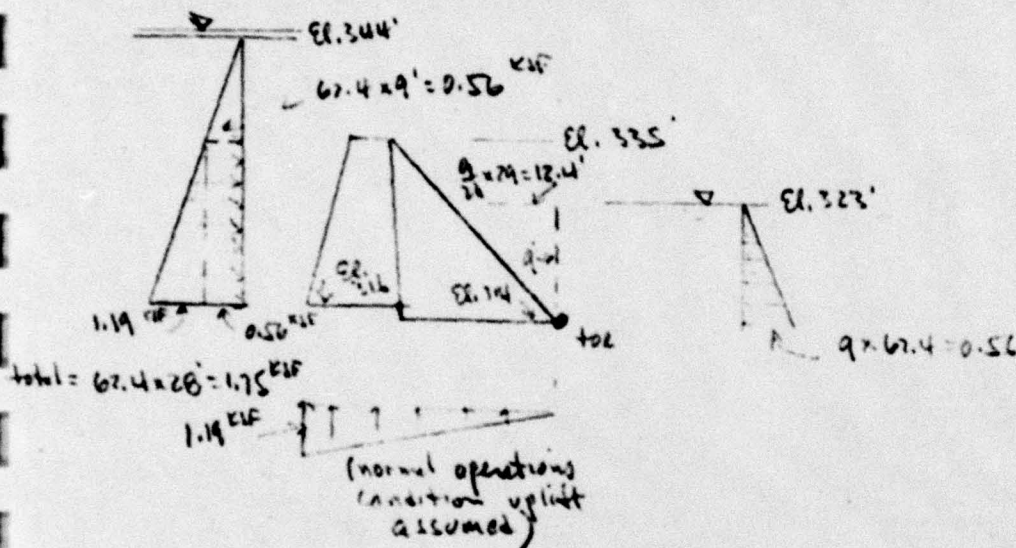 El. 344'
62.4 x 9' = 0.56 KSF
El. 335'
9/21 x 29 = 12.4'
El. 323'
El. 316
El. 314
9'
1.19 KSF
0.56 KSF
toe
9 x 62.4 = 0.56
total = 62.4 x 28' = 1.75 KSF
1.19 KSF
(normal operations
condition uplift
assumed)